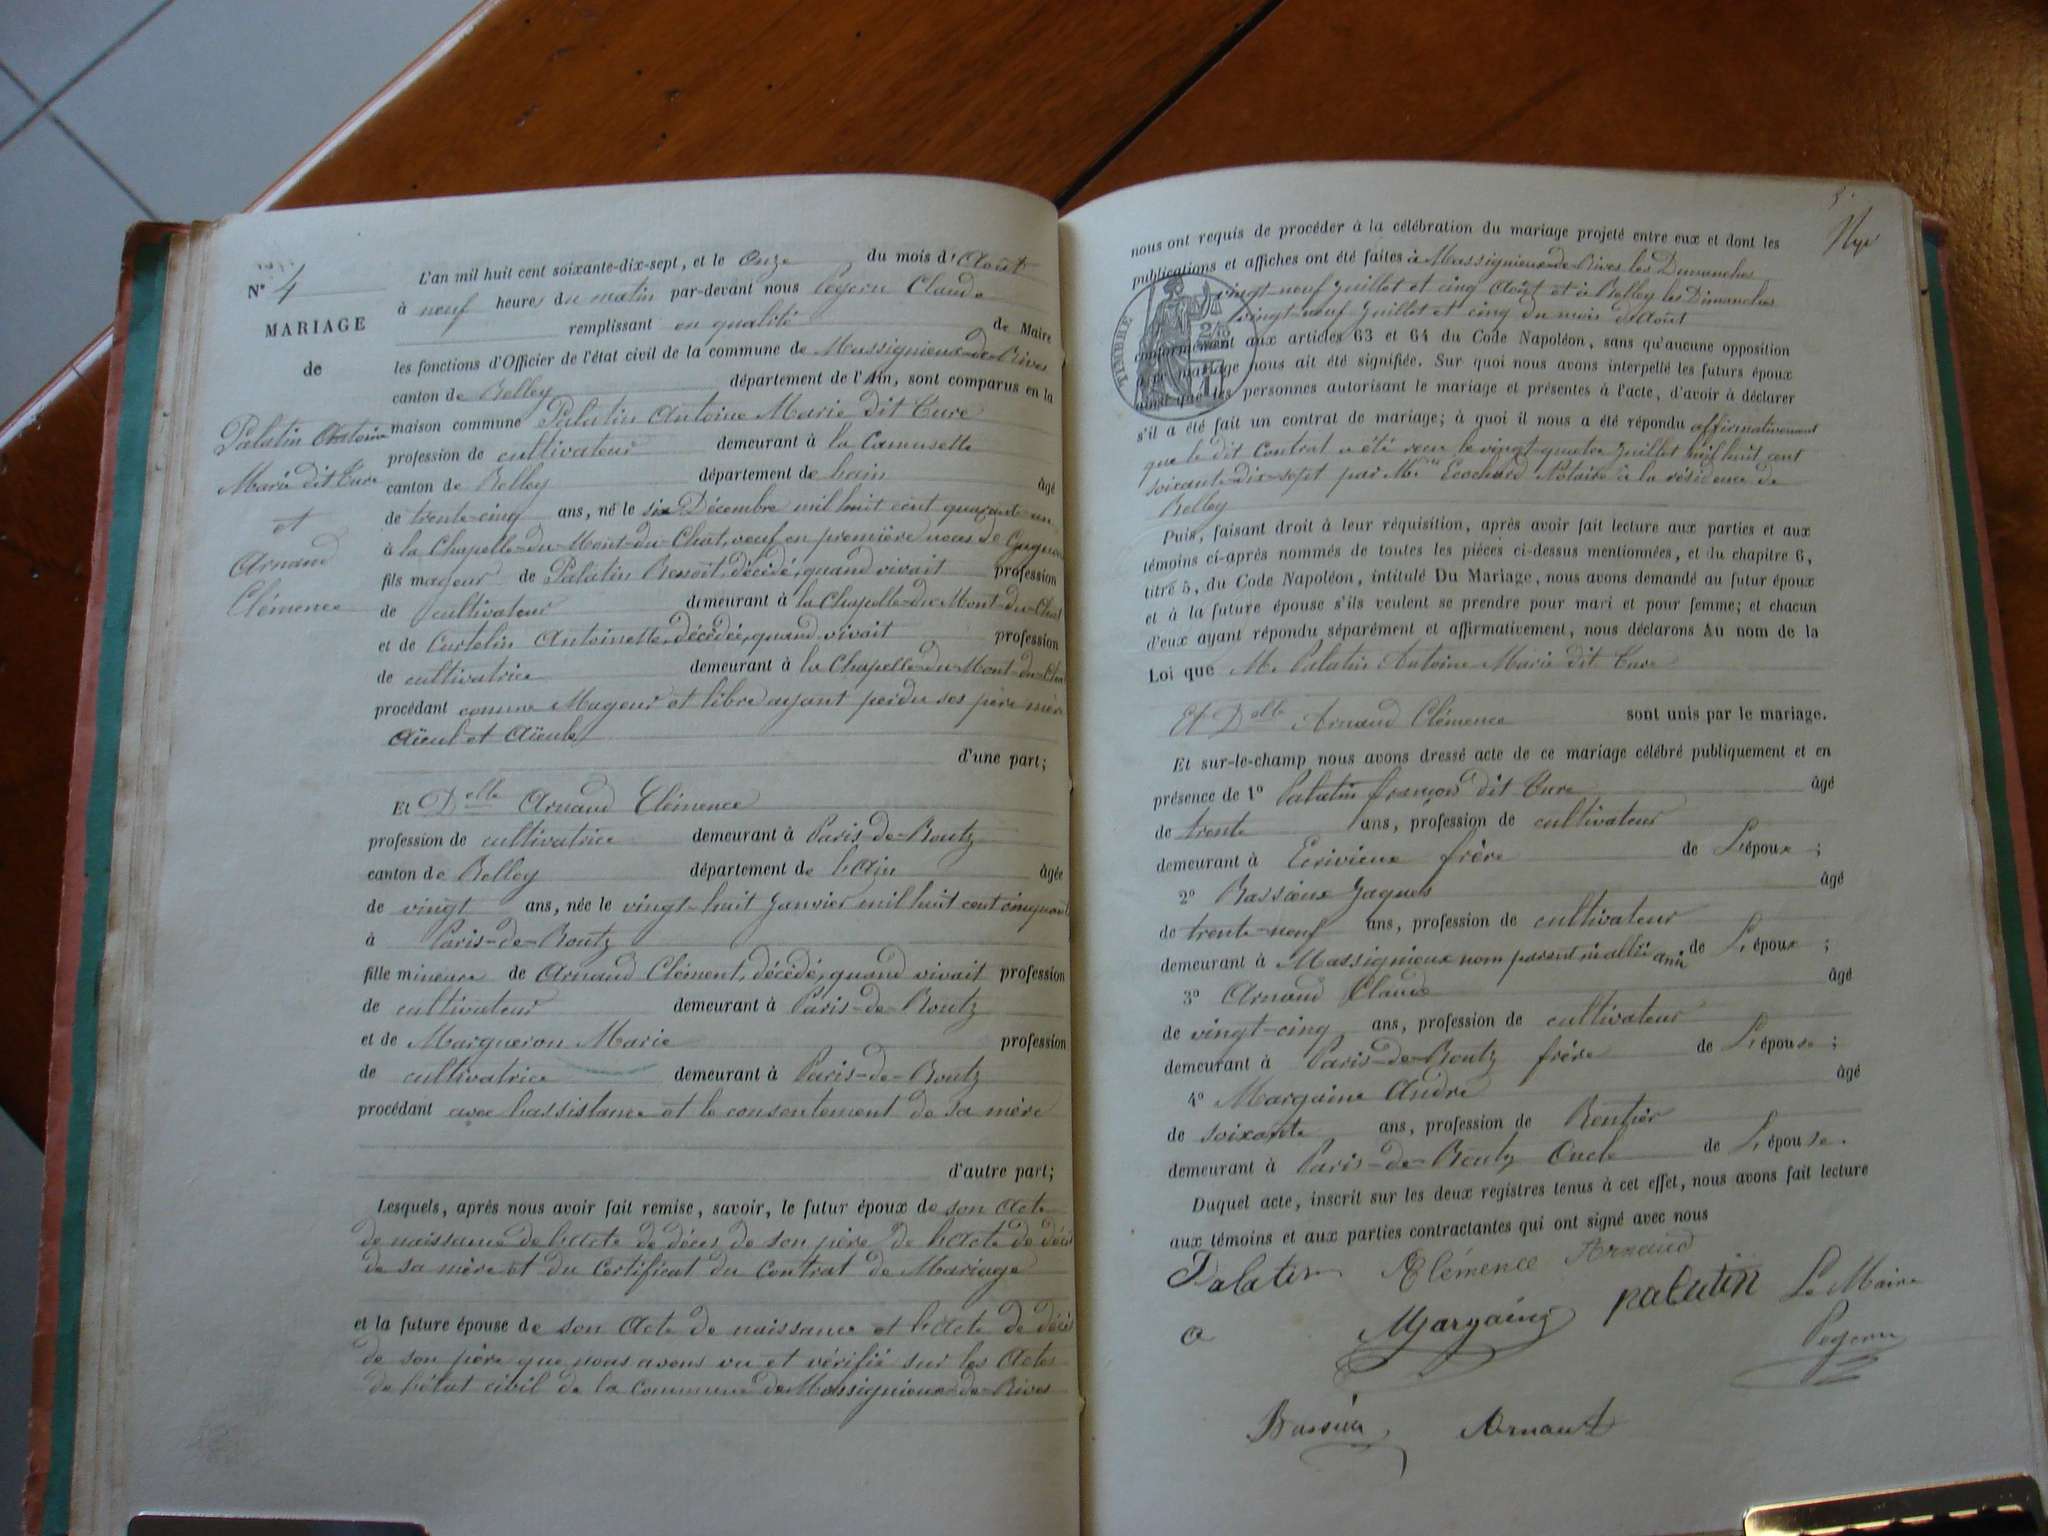 N° 4
MARIAGE
de
Palatin Antoine
Marie dit Cure
et
Arnaud
Clémence
L'an mil huit cent soixante-dix-sept, et le onze du mois d'Août
à neuf heures du matin par-devant nous Peyern Claude
remplissant en qualité de Maire
les fonctions d'Officier de l'état civil de la commune de Massignieux-de-Rives
canton de Belley département de l'Ain, sont comparus en la
maison commune Palatin Antoine Marie dit Cure
profession de cultivateur demeurant à la Camusette
canton de Belley département de hain âgé
de trente-cinq ans, né le six Décembre mil huit cent quarante-un
à la Chapelle-du-Mont-du-Chat, veuf en première noces de
fils mageur de Palatin Benoit, décédé, quand vivait profession
de cultivateur demeurant à la Chapelle-du-Mont-du-Chat
et de Curtelin Antoinette, décédée, quand vivait profession
de cultivatrice demeurant à la Chapelle-du-Mont-du-Chat
procédant comme Mageur et libre ayant perdu ses père mère
Aïeul et Aïeule
d'une part;
Et Delle Arnaud Clémence
profession de cultivatrice demeurant à Paris-de-Boutz
canton de Belley département de l'Ain âgée
de vingt ans, née le vingt-huit Janvier mil huit cent cinquant
à Paris-de-Boutz
fille mineure de Arnaud Clément, décédé, quand vivait profession
de cultivateur demeurant à Paris-de-Boutz
et de Margueron Marie profession
de cultivatrice demeurant à Paris-de-Boutz
procédant avec lassistance et le consentement de sa mère
d'autre part;
Lesquels, après nous avoir fait remise, savoir, le futur époux de son Acte
de naissance de l'acte de déces de son père de l'Acte de décès
de sa mère et du Certificat du Contrat de Mariage
et la future épouse de son Acte de naissance et l'acte de décès
de son père que nous avons vu et vérifié sur les Actes
de l'état civil de la commune de Massignieux-de-Rives
nous ont requis de procéder à la célébration du mariage projeté entre eux et dont les
publications et affiches ont été faites à Massignieux-de-Rives les Dimanches
vingt-neuf Juillet et cinq Août et à Belley les Dimanches
vingt-neuf Juillet et cinq du mois d'Août
TIMBRE
conformément aux articles 63 et 64 du Code Napoléon, sans qu'aucune opposition
à ce mariage nous ait été signifiée. Sur quoi nous avons interpellé les futurs époux
ainsi que les personnes autorisant le mariage et présentes à l'acte, d'avoir à déclarer
s'il a été fait un contrat de mariage; à quoi il nous a été répondu affirmativement
que le dit Contrat a été reçu le vingt-quatre Juillet mil huit cent
soixante-dix-sept par Me Ecochard Notaire à la résidence de
Belley
Puis, faisant droit à leur réquisition, après avoir fait lecture aux parties et aux
témoins ci-après nommés de toutes les pièces ci-dessus mentionnées, et du chapitre 6,
titre 5, du Code Napoléon, intitulé Du Mariage, nous avons demandé au futur époux
et à la future épouse s'ils veulent se prendre pour mari et pour femme; et chacun
d'eux ayant répondu séparément et affirmativement, nous déclarons Au nom de la
Loi que M. Palatin Antoine Marie dit Cure
Et Delle Arnaud Clémence sont unis par le mariage.
Et sur-le-champ nous avons dressé acte de ce mariage célébré publiquement et en
présence de 1° Palatin françois dit Cure âgé
de trente ans, profession de cultivateur
demeurant à Ecrivieux frère de L'époux;
2° Bassieux Jaques âgé
de trente-neuf ans, profession de cultivateur
demeurant à Massignieux nom parent ni allié ami de L'époux;
3° Arnaud Claude âgé
de vingt-cinq ans, profession de cultivateur
demeurant à Paris-de-Boutz frère de L'épouse;
4° Margaine André âgé
de soixante ans, profession de Rentier
demeurant à Paris-de-Boutz Oncle de L'épouse.
Duquel acte, inscrit sur les deux registres tenus à cet effet, nous avons fait lecture
aux témoins et aux parties contractantes qui ont signé avec nous
Palatin Clémence Arnaud
a Margaine palatin Le Maire
Peyern
Bassieu Arnaud